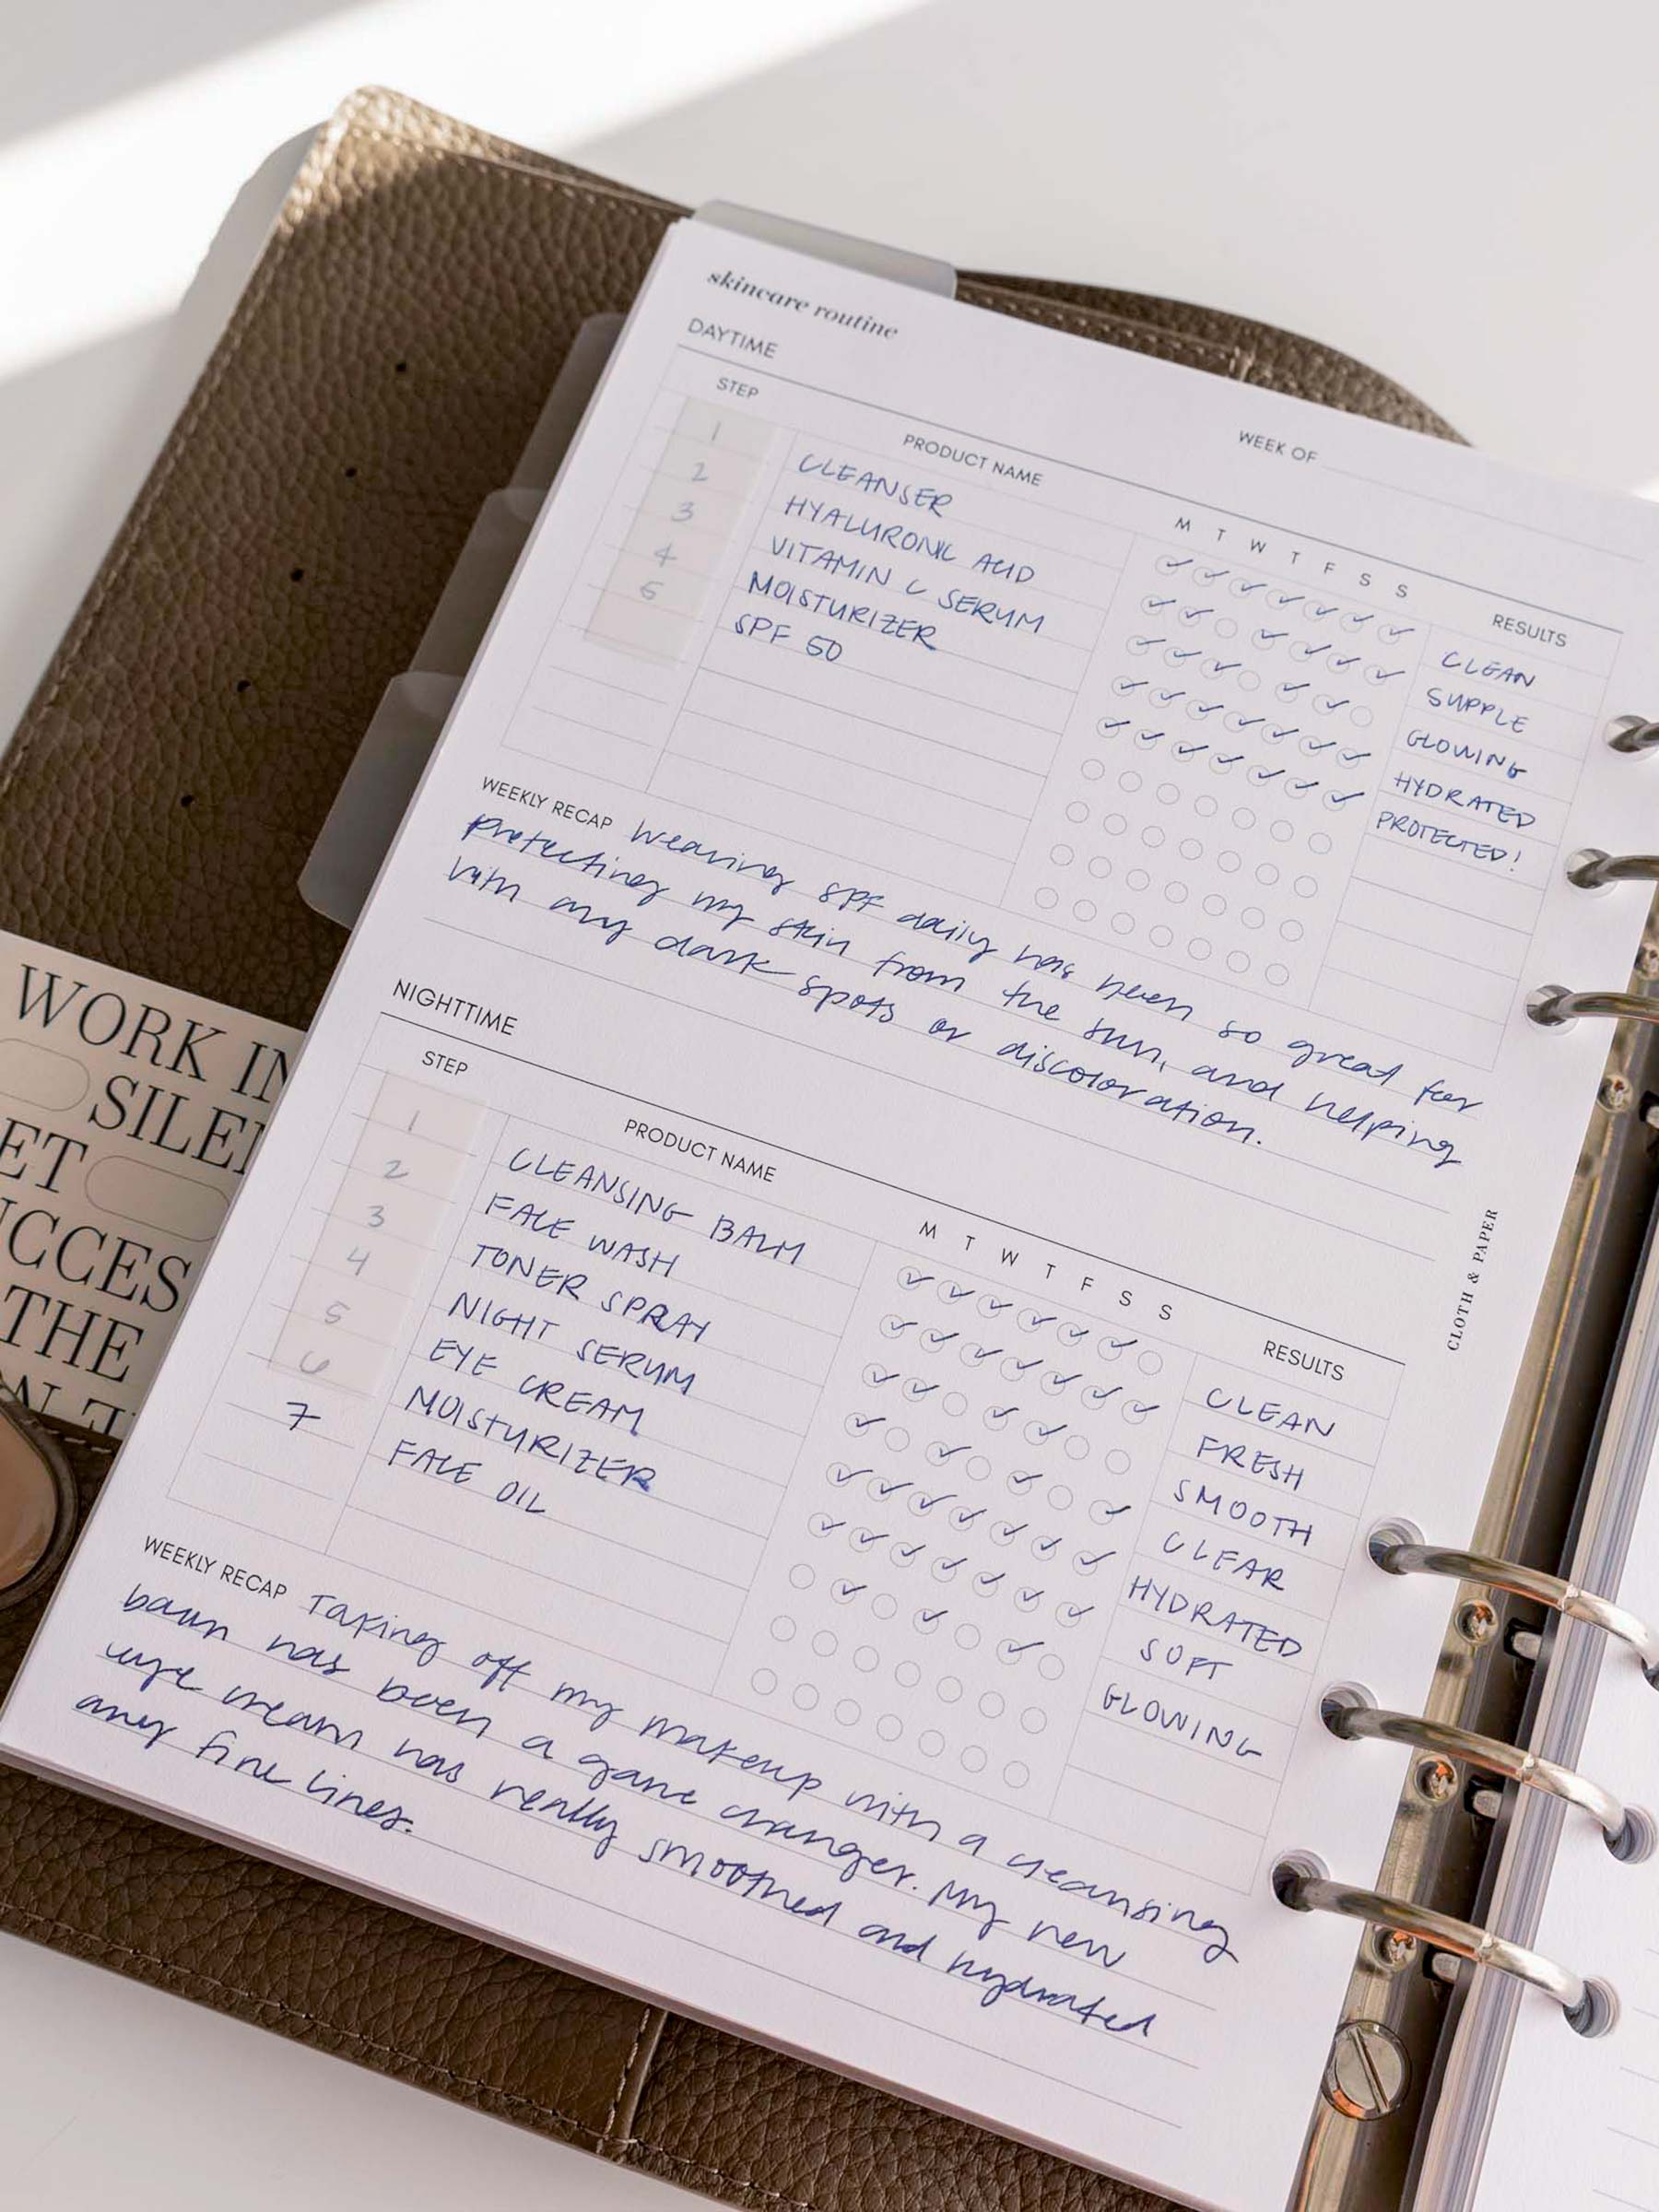 skincare routine
DAYTIME
WEEK OF
STEP PRODUCT NAME M T W T F S S RESULTS
1 CLEANSER ✓ ✓ ✓ ✓ ✓ ✓ ✓ CLEAN
2 HYALURONIC ACID ✓ ✓ ○ ✓ ✓ ✓ ✓ SUPPLE
3 VITAMIN C SERUM ✓ ✓ ✓ ○ ✓ ✓ ○ GLOWING
4 MOISTURIZER ✓ ✓ ✓ ✓ ✓ ✓ ✓ HYDRATED
5 SPF 50 ✓ ✓ ✓ ✓ ✓ ✓ ✓ PROTECTED!
WEEKLY RECAP Wearing SPF daily has been so great for
protecting my skin from the sun, and helping
with any dark spots or discoloration.
NIGHTTIME
STEP PRODUCT NAME M T W T F S S RESULTS
1 CLEANSING BALM ✓ ✓ ✓ ✓ ✓ ✓ ○ CLEAN
2 FACE WASH ✓ ✓ ✓ ✓ ✓ ✓ ✓ FRESH
3 TONER SPRAY ✓ ✓ ○ ✓ ✓ ○ ○ SMOOTH
4 NIGHT SERUM ✓ ○ ✓ ○ ✓ ○ ✓ CLEAR
5 EYE CREAM ✓ ✓ ✓ ✓ ✓ ✓ ✓ HYDRATED
6 MOISTURIZER ✓ ✓ ✓ ✓ ✓ ✓ ✓ SOFT
7 FACE OIL ○ ✓ ○ ✓ ○ ✓ ○ GLOWING
WEEKLY RECAP Taking off my makeup with a cleansing
balm has been a game changer. My new
eye cream has really smoothed and hydrated
any fine lines.
CLOTH & PAPER
WORK IN
SILE
ET
UCCES
THE